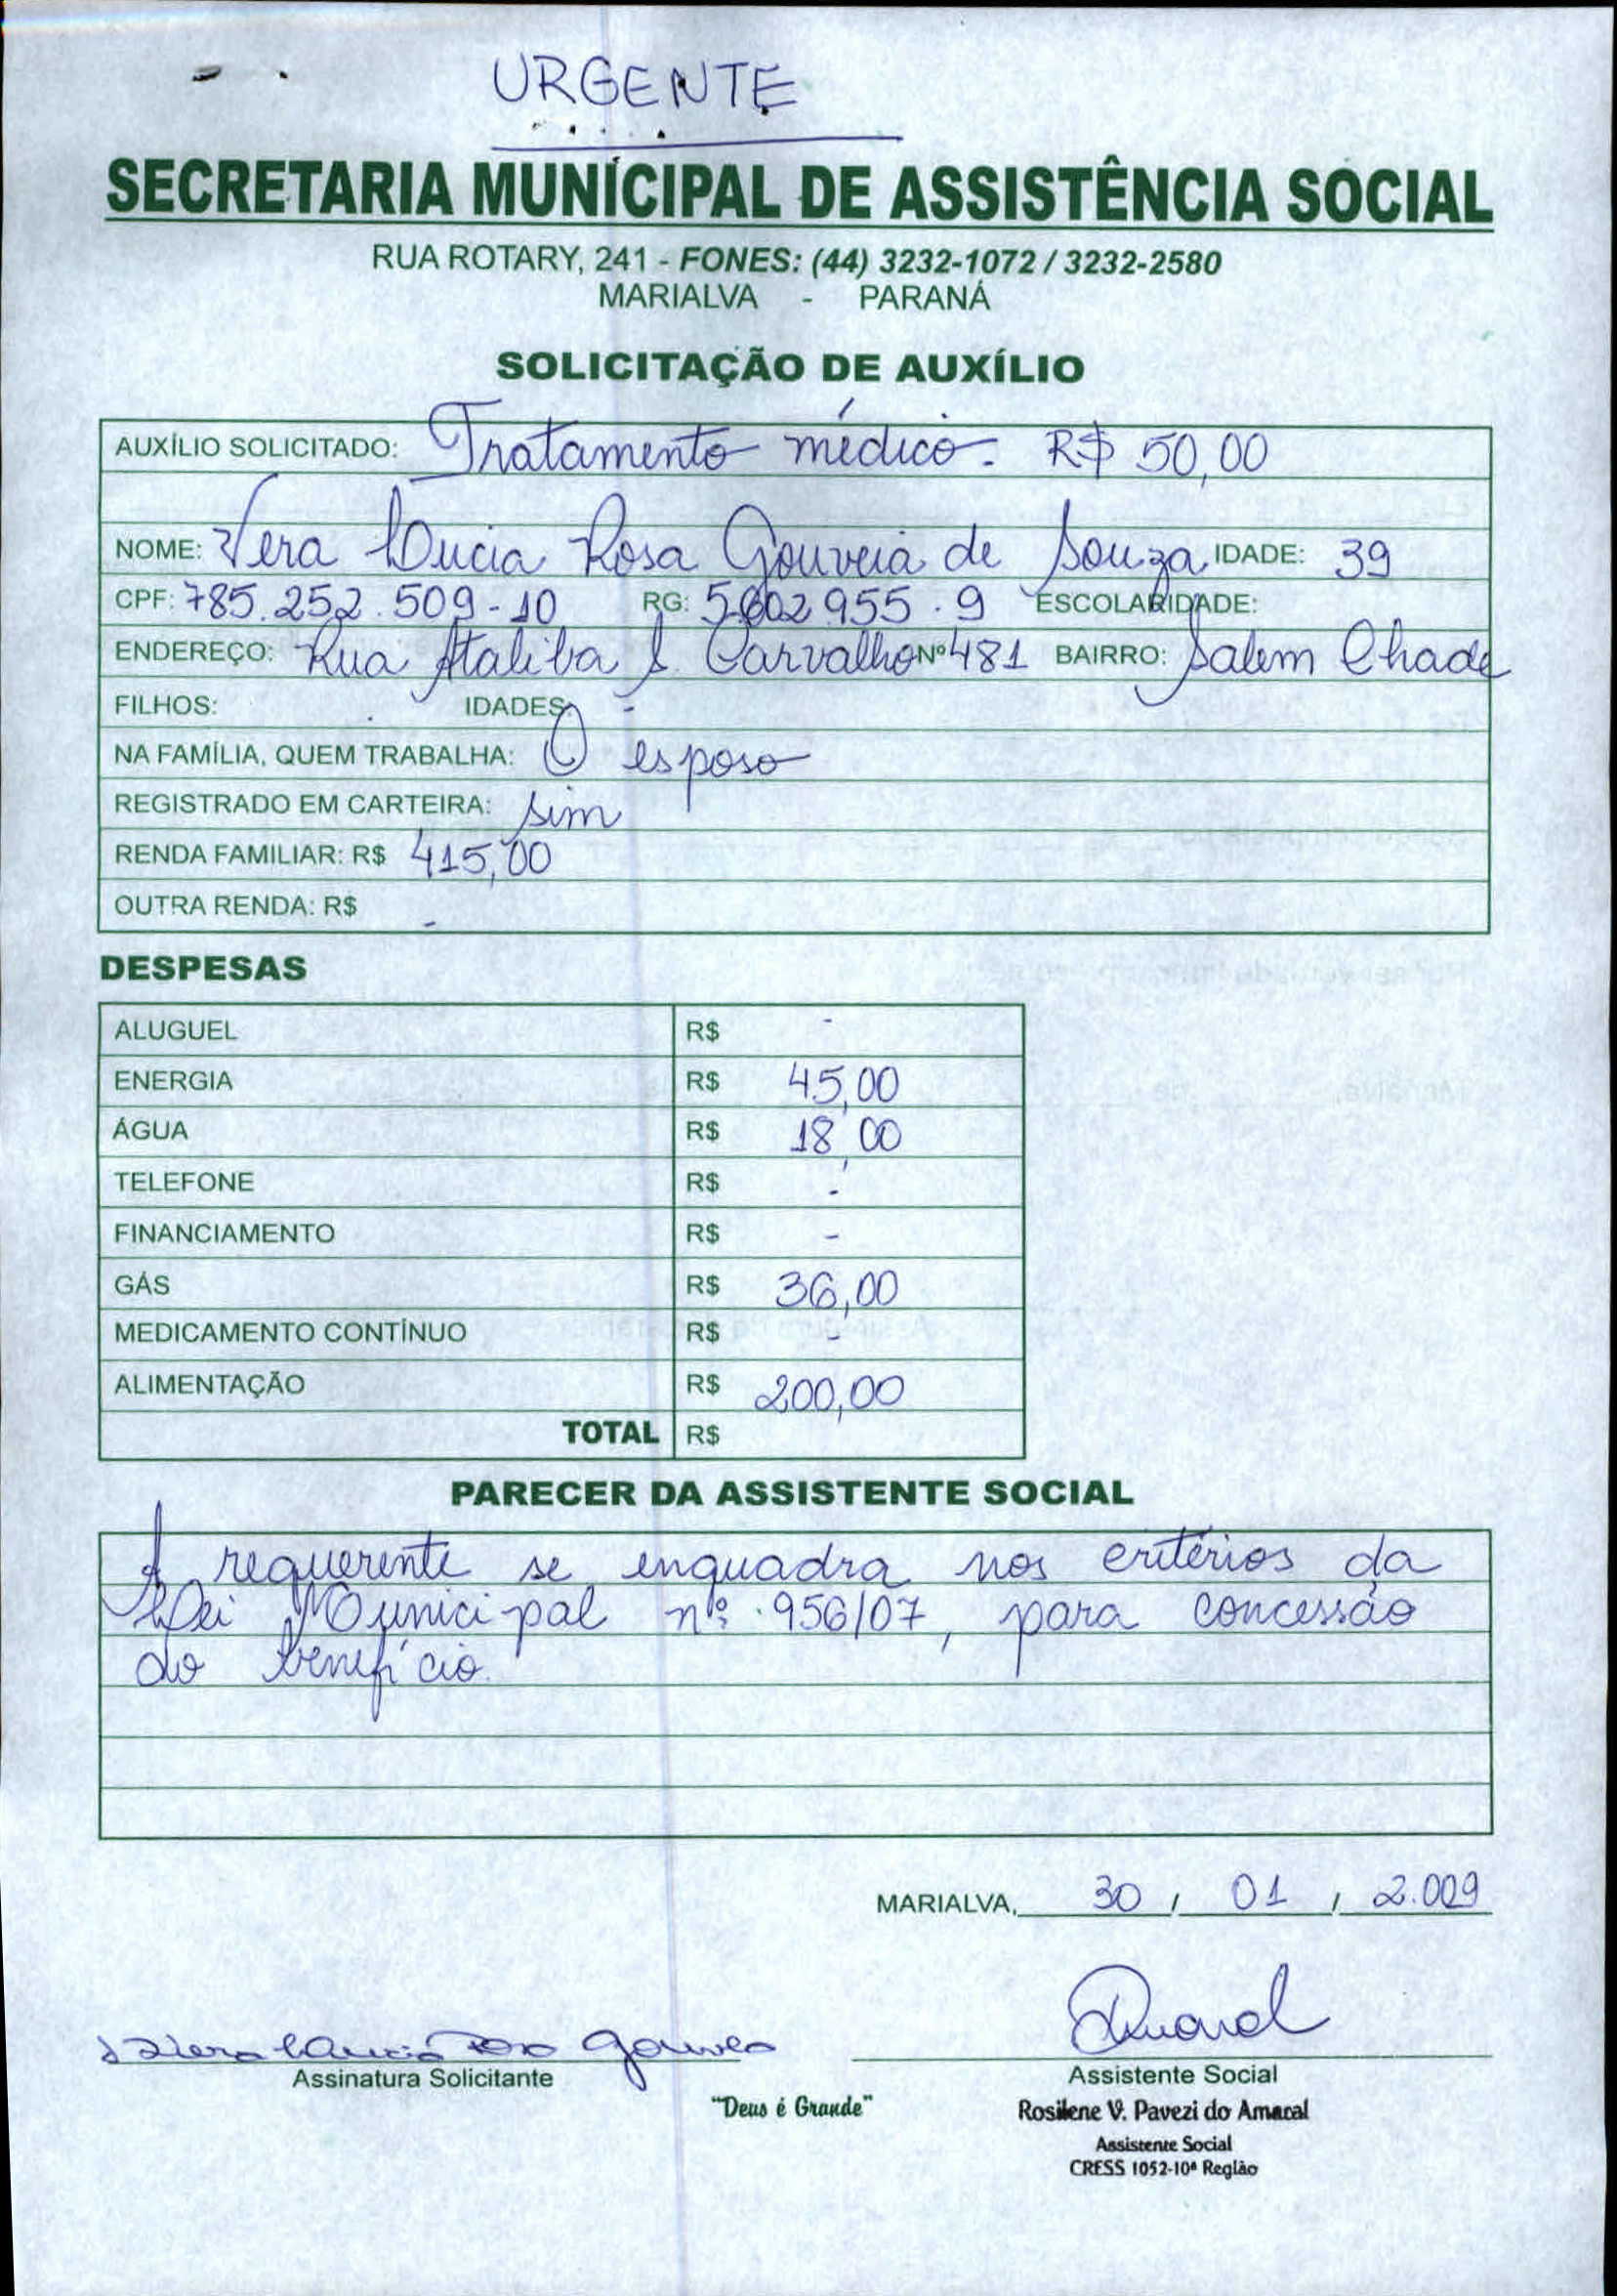 URGENTE
SECRETARIA MUNICIPAL DE ASSISTÊNCIA SOCIAL
RUA ROTARY, 241 - FONES: (44) 3232-1072 / 3232-2580
MARIALVA - PARANÁ
SOLICITAÇÃO DE AUXÍLIO
AUXÍLIO SOLICITADO: Tratamento médico. R$ 50,00
NOME: Vera Lucia Rosa Gouveia de Souza IDADE: 39
CPF: 785.252.509-10 RG: 5602955.9 ESCOLARIDADE:
ENDEREÇO: Rua Ataliba S. Carvalho Nº 481 BAIRRO: Salem Chade
FILHOS: IDADES: -
NA FAMÍLIA, QUEM TRABALHA: O esposo
REGISTRADO EM CARTEIRA: sim
RENDA FAMILIAR: R$ 415,00
OUTRA RENDA: R$ -
DESPESAS
ALUGUEL R$ -
ENERGIA R$ 45,00
ÁGUA R$ 18,00
TELEFONE R$ -
FINANCIAMENTO R$ -
GÁS R$ 36,00
MEDICAMENTO CONTÍNUO R$ -
ALIMENTAÇÃO R$ 200,00
TOTAL R$
PARECER DA ASSISTENTE SOCIAL
A requerente se enquadra nos critérios da
Lei Municipal nº 956/07, para concessão
do benefício.
MARIALVA, 30 / 01 / 2.009
Vera Lucia Rosa Gouvea
Assinatura Solicitante
Assistente Social
"Deus é Grande"
Rosilene V. Pavezi do Amaral
Assistente Social
CRESS 1052-10ª Região